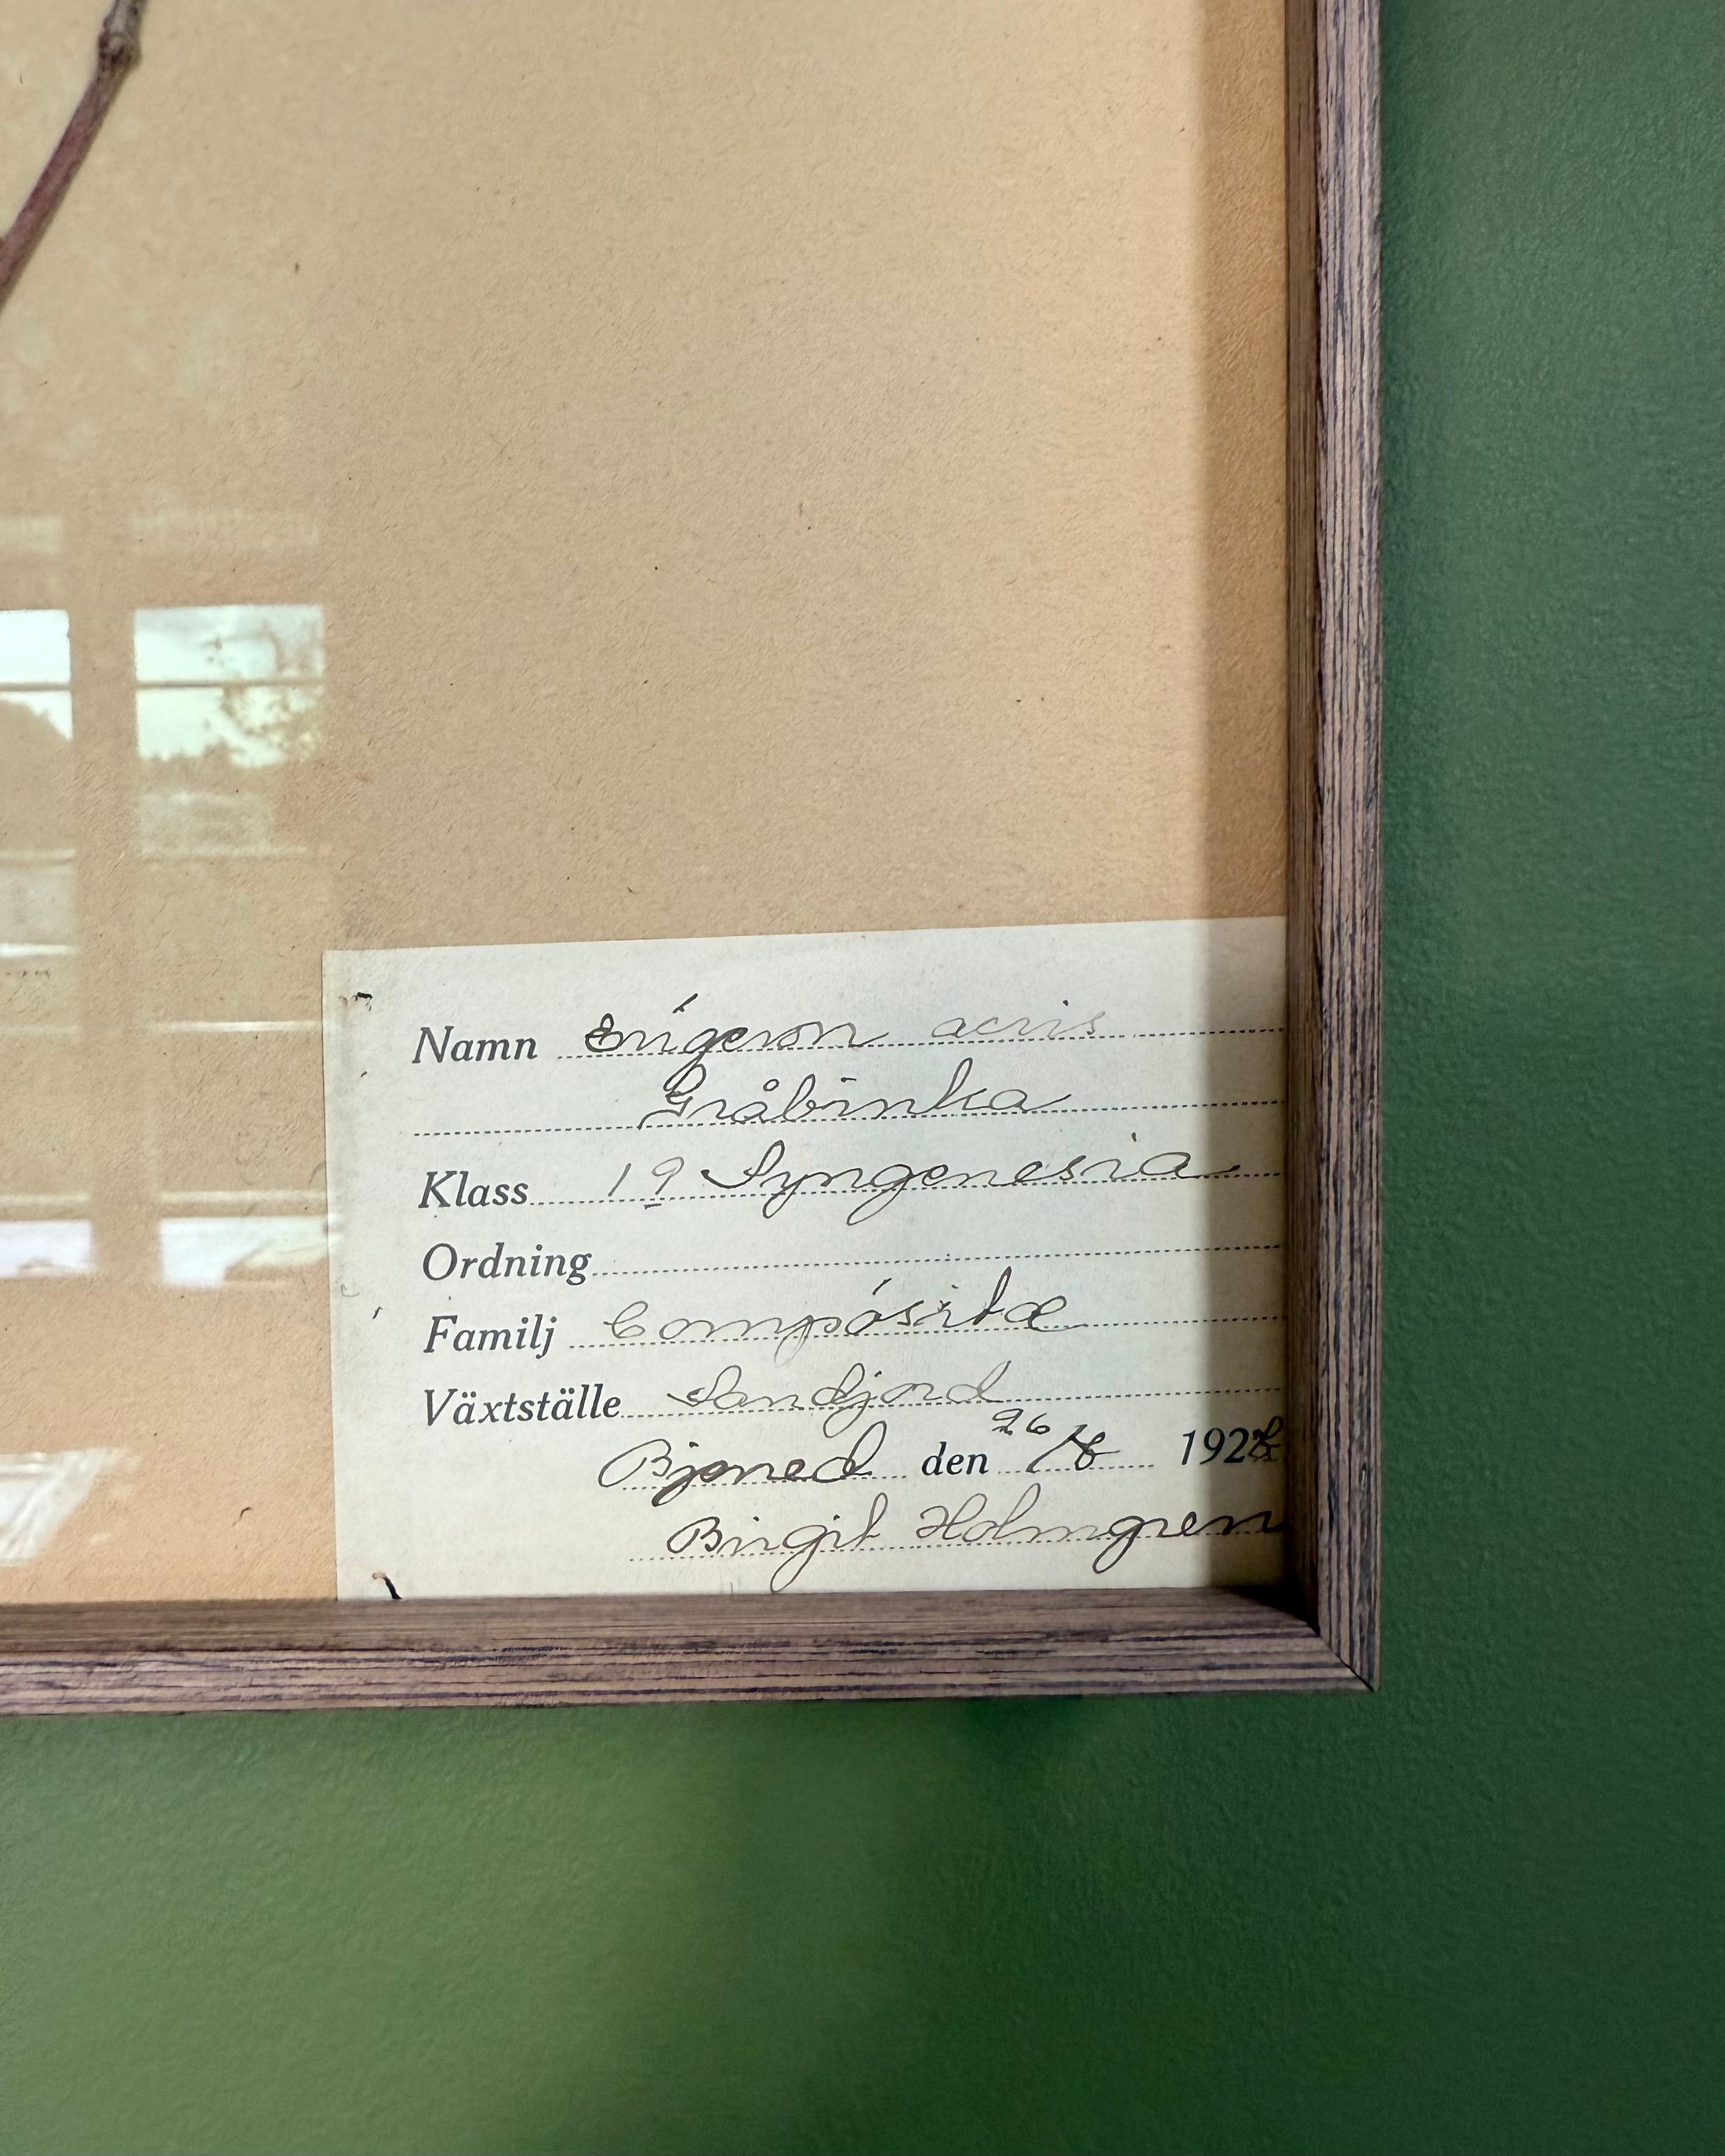 Namn Erígeron acris
Gråbinka
Klass 19 Syngenesia
Ordning
Familj Compósitæ
Växtställe Sandjord
Bjärred den 26/8 192
Birgit Holmgren